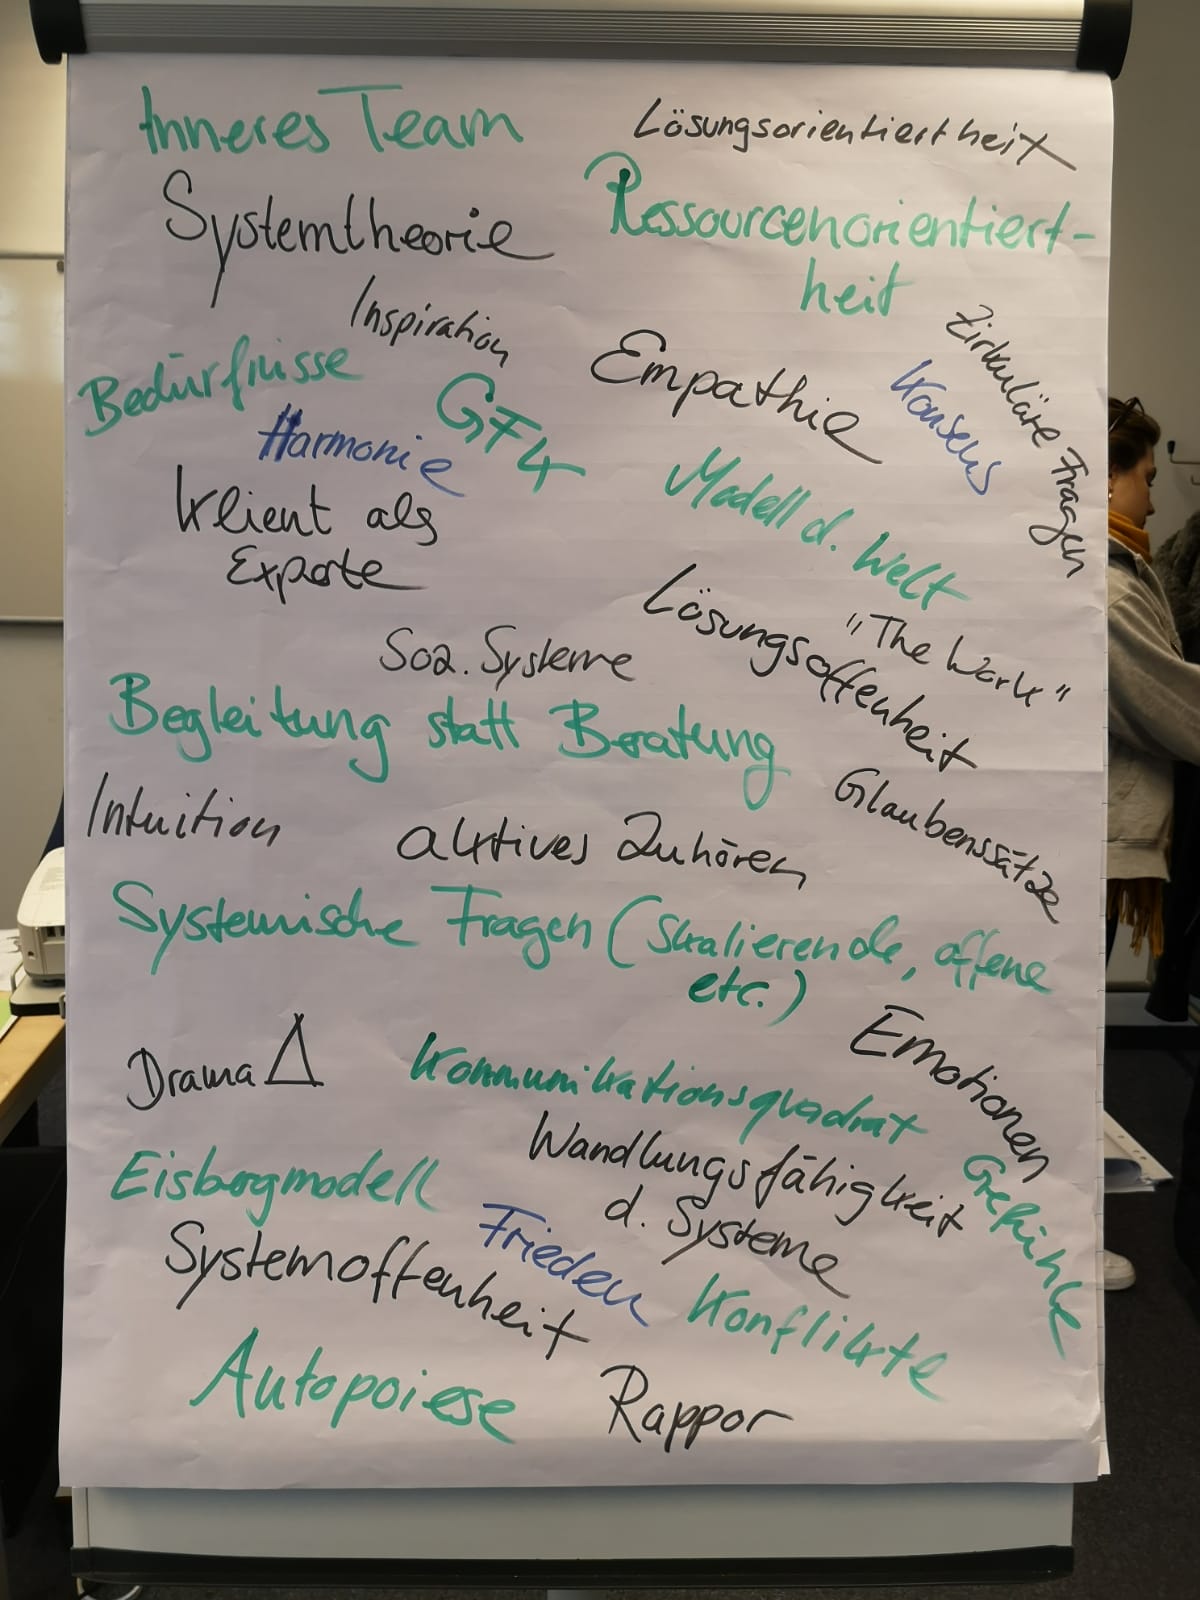 Inneres Team
Lösungsorientiertheit
Systemtheorie
Ressourcenorientiert-
heit
Inspiration
Zirkuläre Fragen
Bedürfnisse
Empathie
Konsens
GFK
Harmonie
Modell d. Welt
Klient als
Experte
Lösungsoffenheit
"The Work"
Soz. Systeme
Begleitung statt Beratung
Glaubenssätze
Intuition
aktives Zuhören
Systemische Fragen (Skalierende, offene
etc.)
Emotionen
Drama Δ
Kommunikationsquadrat
Wandlungsfähigkeit
d. Systeme
Gefühle
Eisbergmodell
Frieden
Systemoffenheit
Konflikte
Autopoiese
Rappor